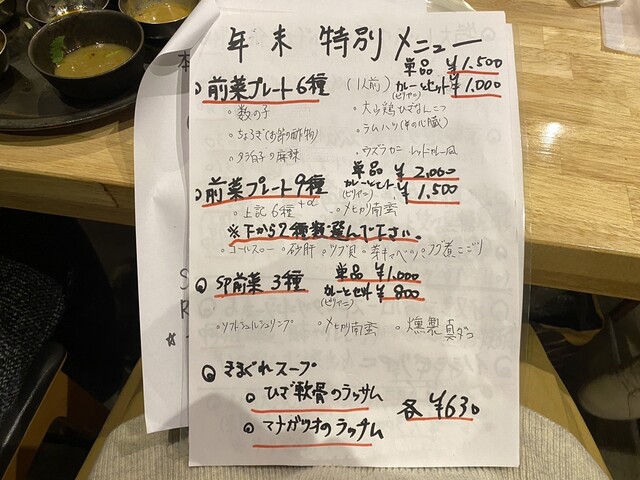 年末 特別メニュー
前菜プレート6種 (1人前) 単品 ¥1,500
カレーとセット ¥1,000
(ビリヤニ)
・数の子 ・大山鶏ひざなんこつ
・ちょろぎ(お節の酢物) ・ラムハツ(羊の心臓)
・タラ白子の麻辣 ・ウズラ カニ レッドカレー風
前菜プレート9種 単品 ¥2,000
カレーとセット ¥1,500
(ビリヤニ)
・上記6種+α ・メヒカリ南蛮
※下から2種類選んで下さい。
・コールスロー ・砂肝 ・ツブ貝 ・芽キャベツ ・フグ煮こごり
SP前菜 3種 単品 ¥1,000
カレーとセット ¥800
(ビリヤニ)
・ソフトシェルシュリンプ ・メヒカリ南蛮 ・燻製真ダコ
きまぐれスープ
ひざ軟骨のラッサム
マナガツオのラッサム 各 ¥630